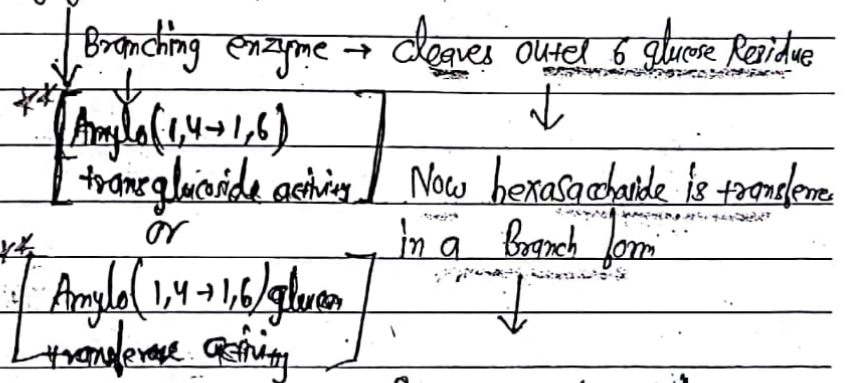 Branching enzyme → cleaves outer 6 glucose Residue
** Amylo(1,4→1,6)
transglucoside activity
Now hexasaccharide is transferre
or
in a Branch form
** Amylo(1,4→1,6)glucan
transferase activity